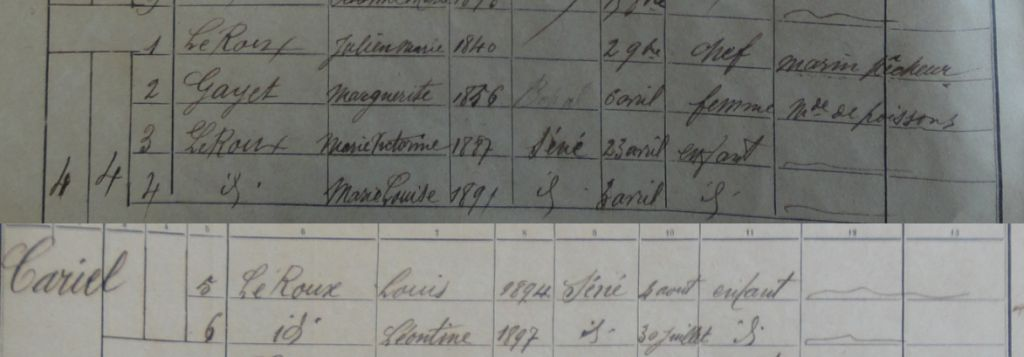 1 LeRoux Julien Marie 1840 2 9bre chef marin pêcheur
2 Gayet Marguerite 1856 6 avril femme Mde de poissons
3 LeRoux Marie 1887 Séné 23 avril enfant
4 4 4 id. Marie Louise 1891 id 3 avril id.
5 6 7 8 9 10 11 12 13
Cariel 5 LeRoux Louis 1894 Séné 4 aout enfant
6 id. Léontine 1897 id. 30 juillet id